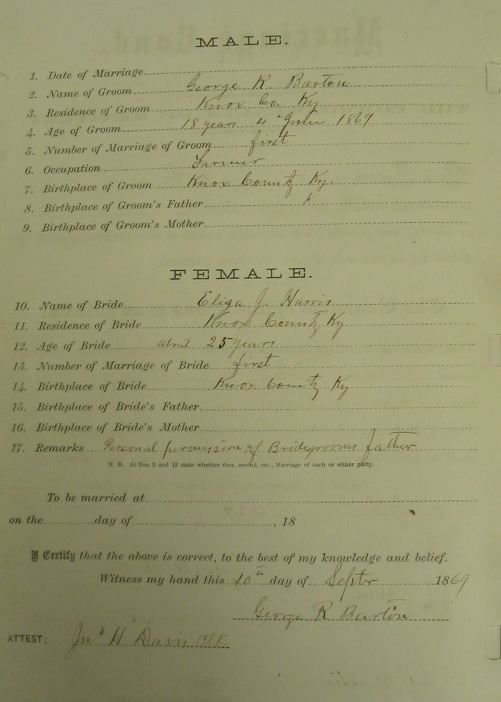 MALE.
1. Date of Marriage
2. Name of Groom George R Barton
3. Residence of Groom Knox Co. Ky
4. Age of Groom 18 years 4th June 1869
5. Number of Marriage of Groom first
6. Occupation Farmer
7. Birthplace of Groom Knox County Ky.
8. Birthplace of Groom's Father
9. Birthplace of Groom's Mother
FEMALE.
10. Name of Bride Eliza J. Harris
11. Residence of Bride Knox County Ky
12. Age of Bride about 25 years
13. Number of Marriage of Bride first
14. Birthplace of Bride Knox County Ky
15. Birthplace of Bride's Father
16. Birthplace of Bride's Mother
17. Remarks Personal permission of Bridegrooms father
N. B. At Nos. 5 and 13 state whether first, second, etc., Marriage of each or either party.
To be married at
on the day of , 18
I Certify that the above is correct, to the best of my knowledge and belief.
Witness my hand this 10th day of Septr 1869
George R Barton
ATTEST: Jno H Davis clk